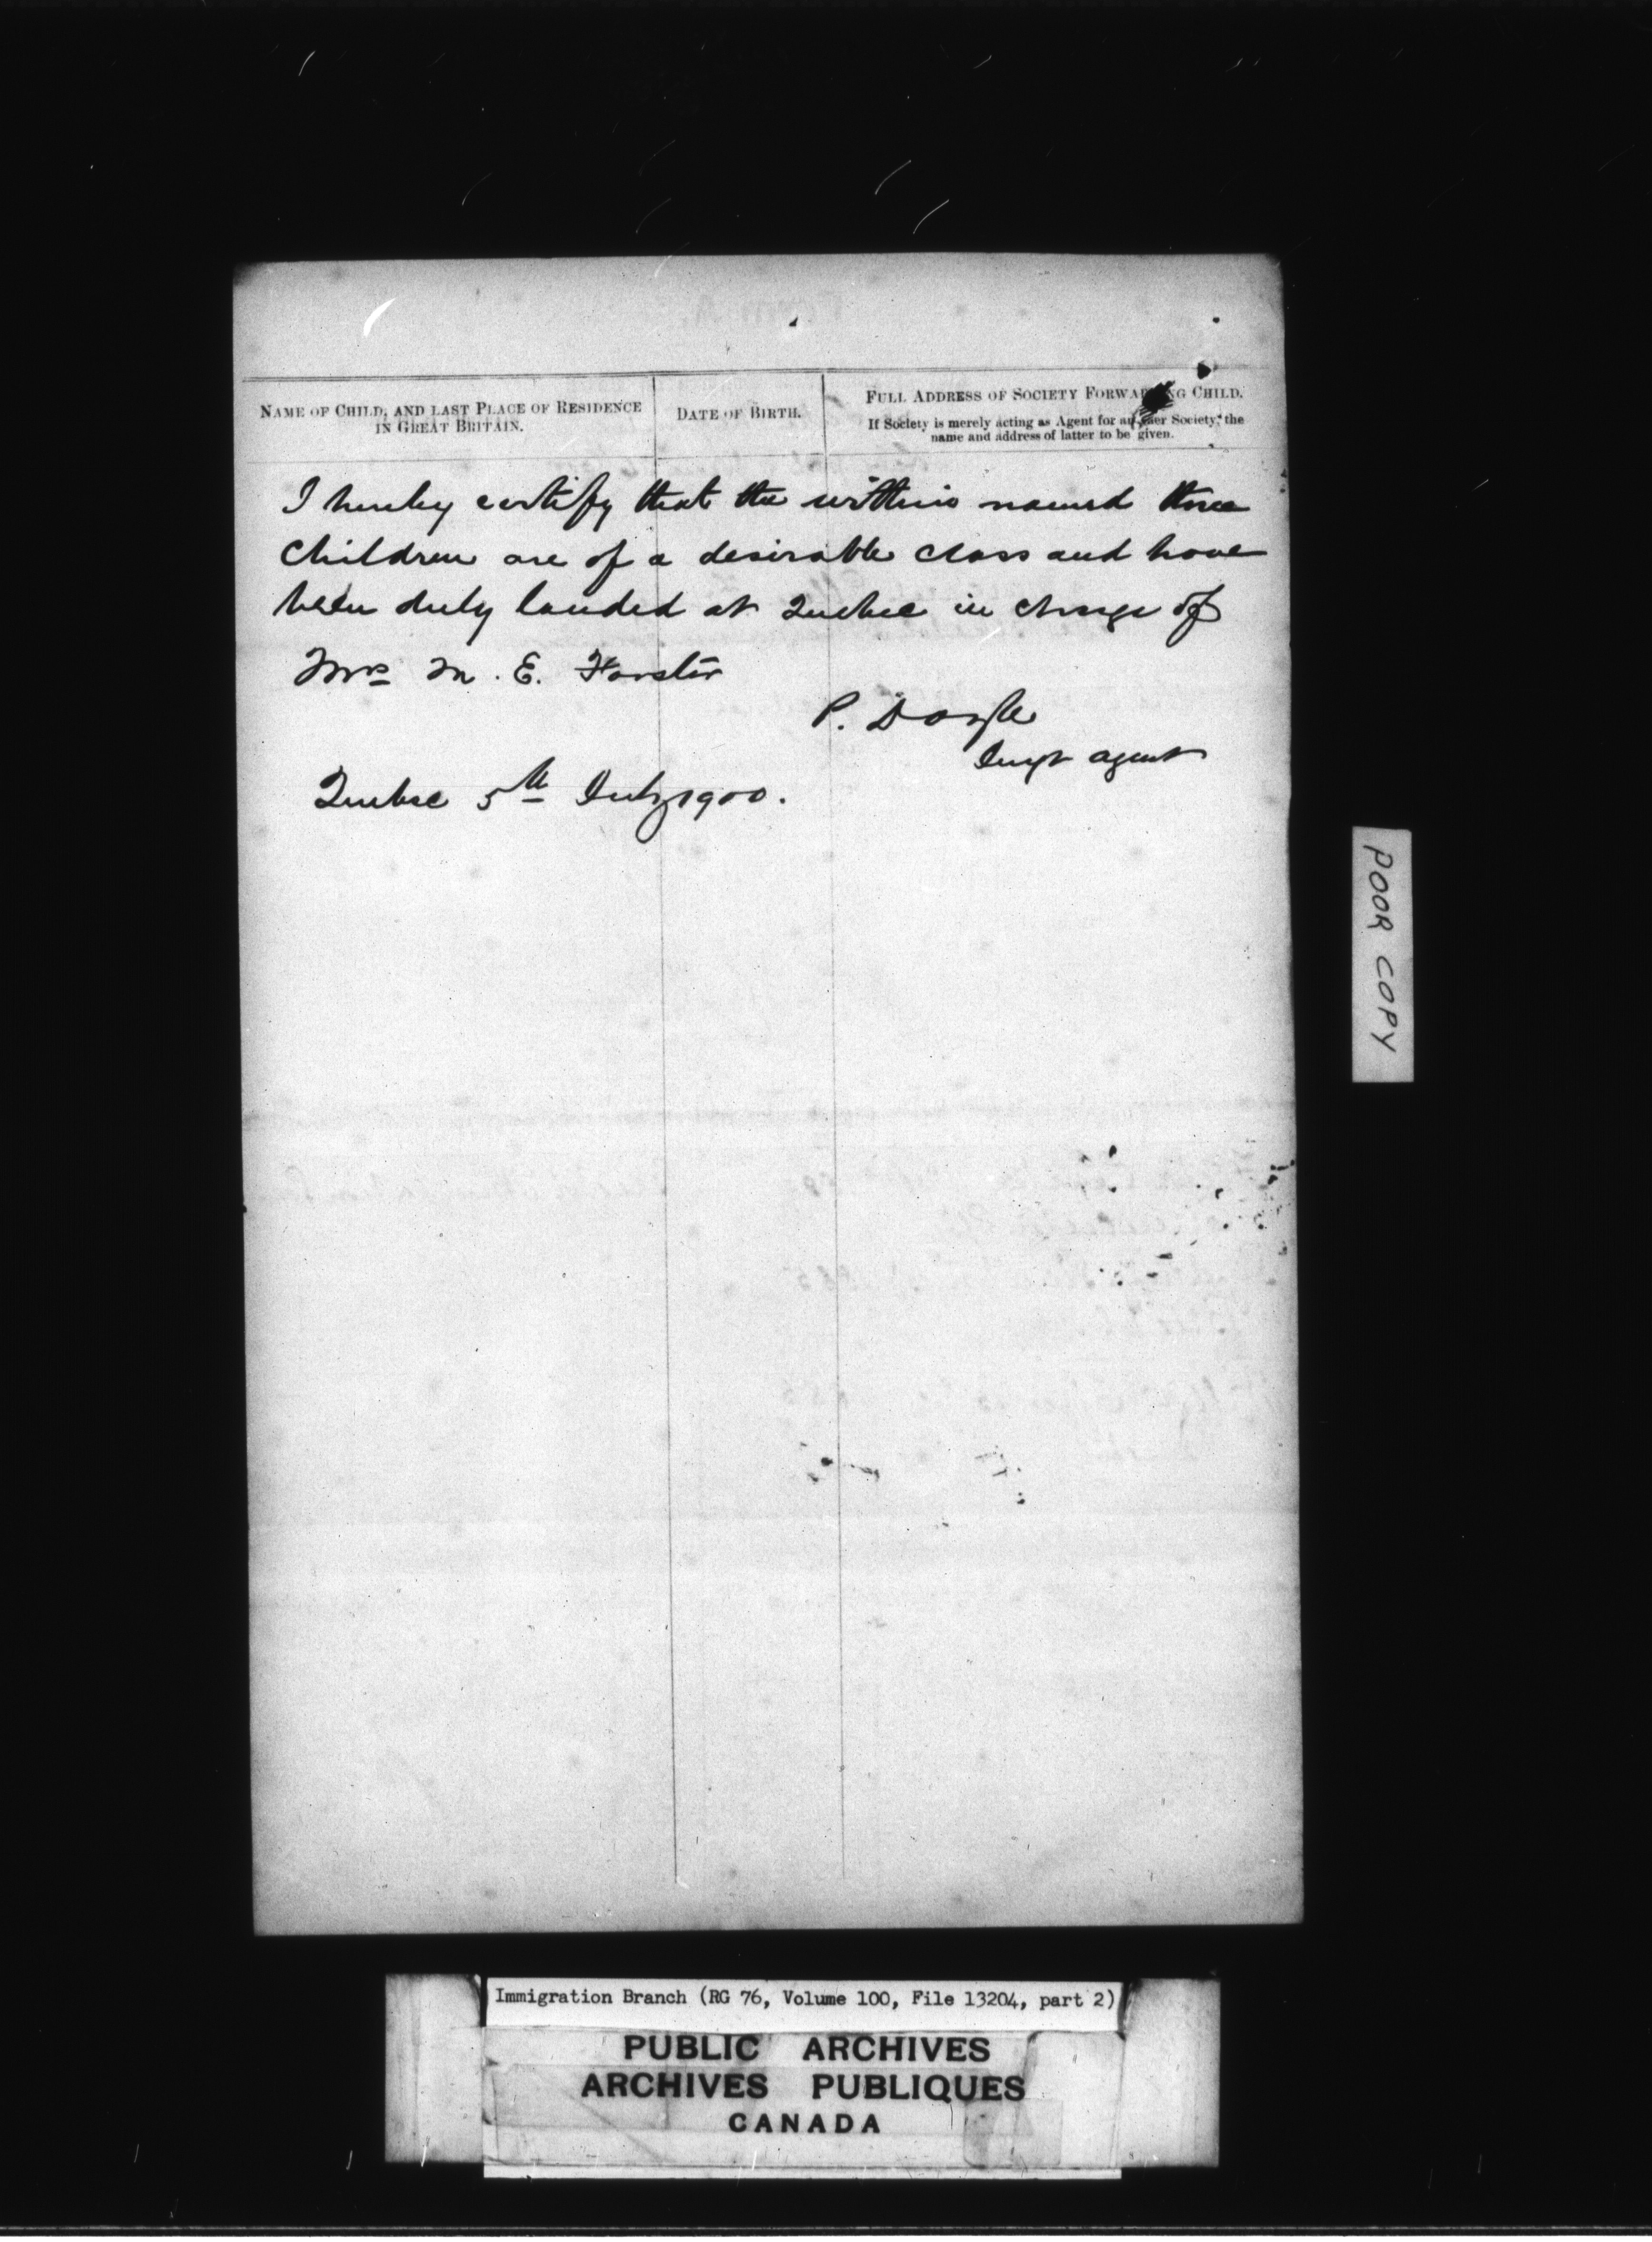 NAME OF CHILD, AND LAST PLACE OF RESIDENCE
IN GREAT BRITAIN.
DATE OF BIRTH.
FULL ADDRESS OF SOCIETY FORWARDING CHILD.
If Society is merely acting as Agent for another Society, the
name and address of latter to be given.
I hereby certify that the within named three
Children are of a desirable class and have
been duly landed at Quebec in charge of
Mrs M. E. Forster
P. Doyle
Immgt agent
Quebec 5th July 1900.
POOR COPY
Immigration Branch (RG 76, Volume 100, File 13204, part 2)
PUBLIC ARCHIVES
ARCHIVES PUBLIQUES
CANADA